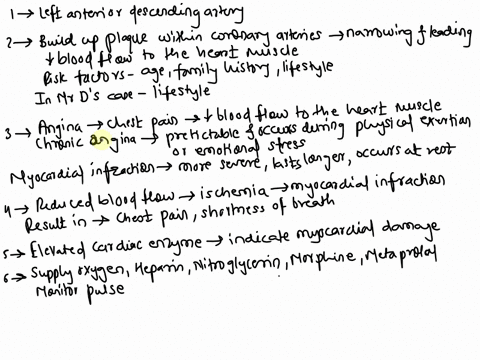 1 → Left anterior descending artery
2 → Build up plaque within coronary arteries → narrowing & leading
↓ blood flow to the heart muscle
Risk factors - age, family history, lifestyle
In Mr D's case - lifestyle
3 → Angina → chest pain → ↓ blood flow to the heart muscle
Chronic angina → pretictable & occurs during physical exertion
or emotional stress
Myocardial infraction → more severe, lasts longer, occurs at rest
4 → Reduced blood flow → ischemia → myocardial infraction
Result in → Chest pain, shortness of breath
5 → Elevated cardiac enzyme → indicate myocardial damage
6 → Supply oxygen, Heparin, Nitroglycerin, Morphine, Metaprolal
Monitor pulse